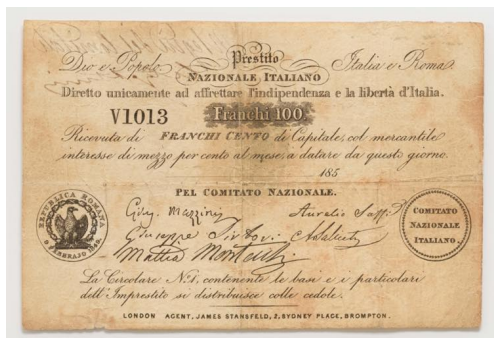 Dio e Popolo. Prestito Italia e Roma.
NAZIONALE ITALIANO
Diretto unicamente ad affrettare l'indipendenza e la libertà d'Italia.
V1013 Franchi 100.
Ricevuta di FRANCHI CENTO di Capitale, col mercantile
interesse di mezzo per cento al mese, a datare da questo giorno.
185
PEL COMITATO NAZIONALE.
REPUBLICA ROMANA
9 FEBBRAJO 1849.
Gius. Mazzini Aurelio Saffi
Giuseppe Sirtori A. Saliceti
Mattia Montecchi
COMITATO
NAZIONALE
ITALIANO.
La Circolare No. 1, contenente le basi e i particolari
dell'Imprestito si distribuisce colle cedole.
LONDON AGENT, JAMES STANSFELD, 2, SYDNEY PLACE, BROMPTON.